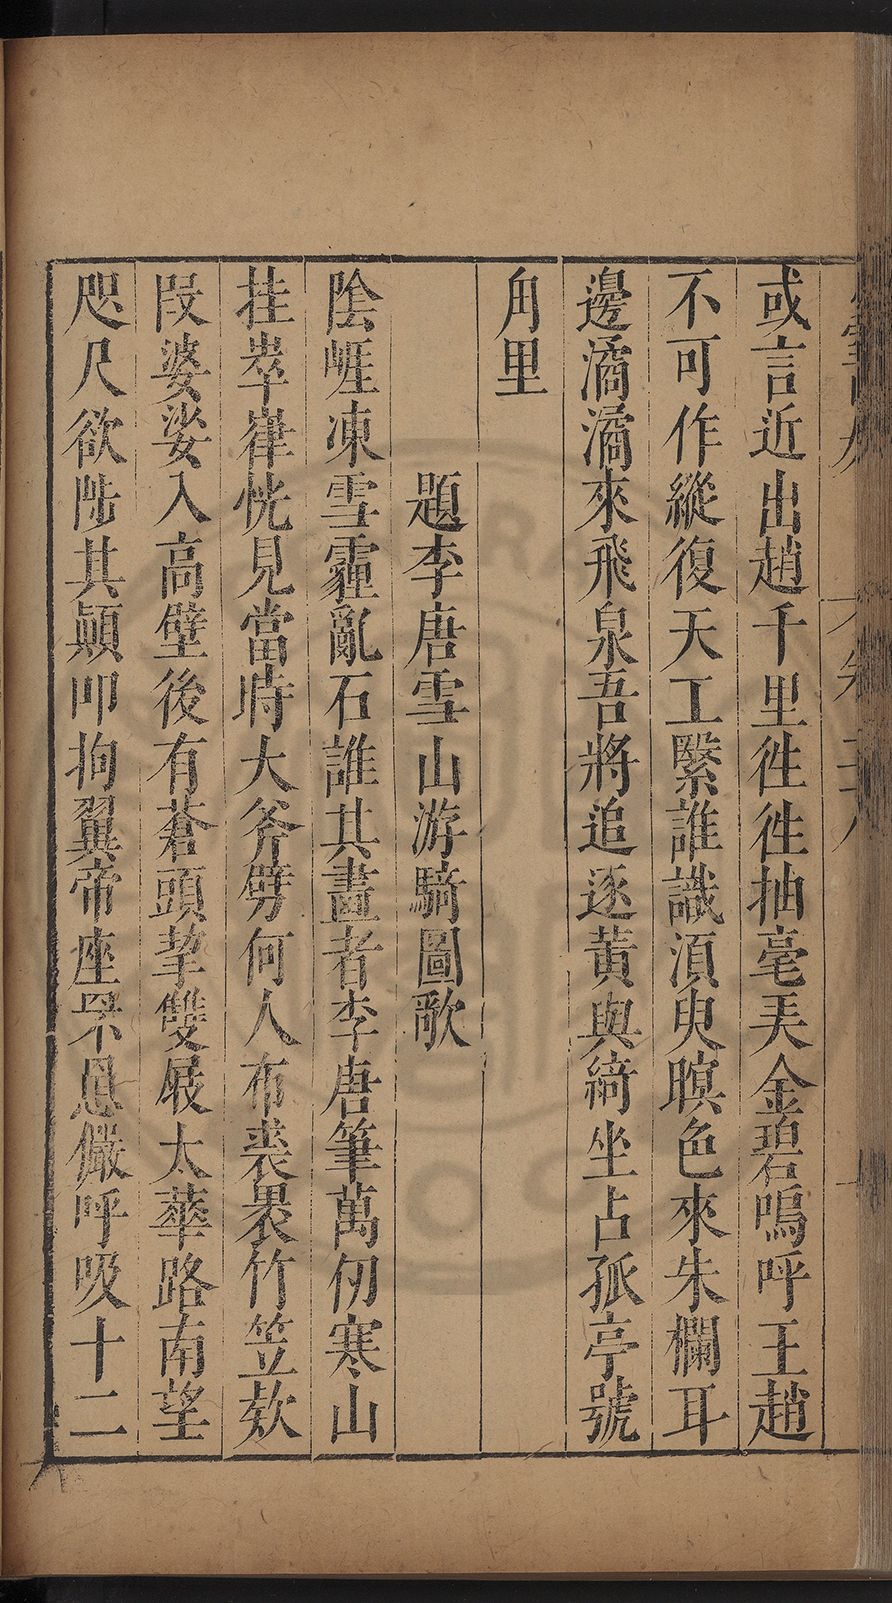 或言近出趙千里徃徃抽毫美金碧嗚呼王趙
不可作縱復天工繄誰識湏臾暝色來朱欄耳
邊潏潏來飛泉吾將追逐黃與綺坐占孤亭號
甪里
題李唐雪山游騎圖歌
陰崕凍雪霾亂石誰其畫者李唐筆萬仞寒山
挂崒嵂恍見當時大斧劈何人布裘褁竹笠欵
叚婆娑入高壁後有蒼頭挈雙屐太華路南望
咫尺欲陟其顛叩拘翼帝座罘罳儼呼吸十二